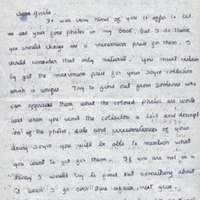 It was very kind of you to offer to let
me use your fine photos in my book. But I do think
you should charge me a minimum price for them. I
would consider that only natural. You must realise
to get the maximum price for your Joyce collection
which is unique. Try to find out from someone who
can appraise them what the colored photos are worth
and when you send the collection a list and descript
ion of the photos, date and circumstances of your
doing Joyce you will be able to mention what
you want to get for them. If you are not in a
hurry I would try to find out something about
it when I go over there again next year.